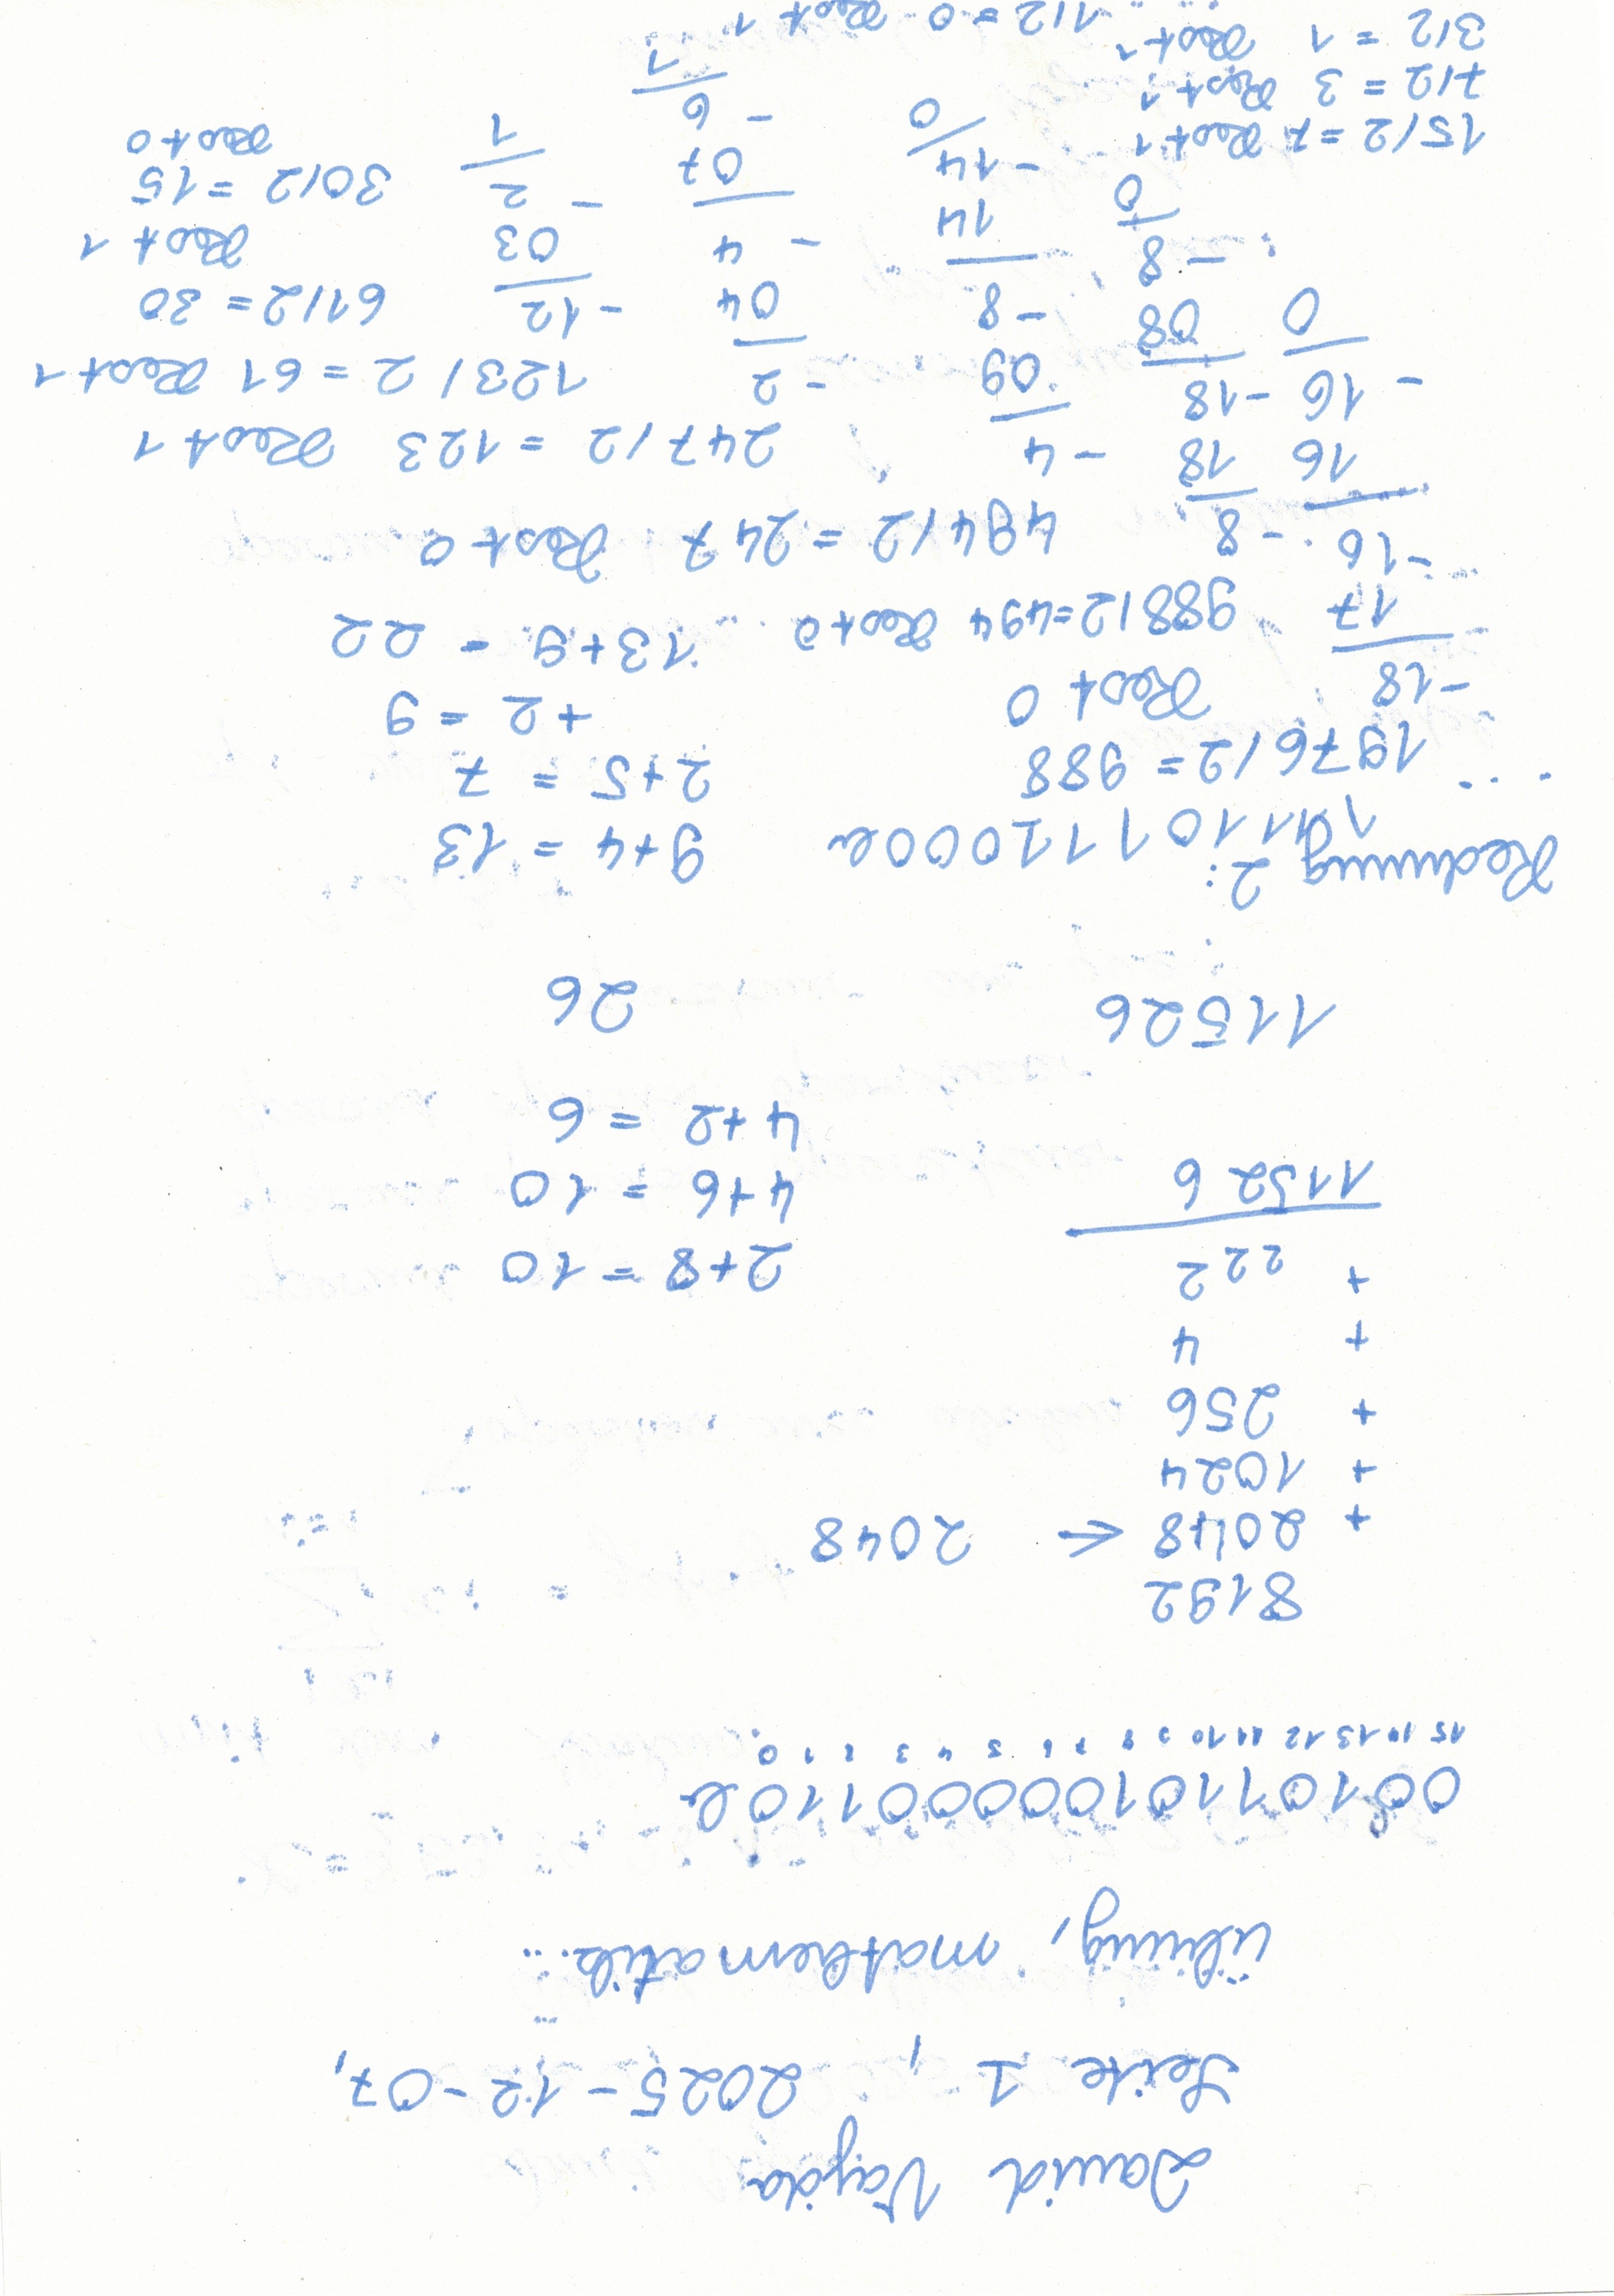 David Vajda
Seite 1, 2025-12-07,
übung, mathematik...
0010110100000110b
15 14 13 12 11 10 9 8 7 6 5 4 3 2 1 0
8192
+ 2048 ← 2048
+ 1024
+ 256
+ 4
+ 222
11526
2+8 = 10
4+6 = 10
4+2 = 6
11526
26
Rechnung 2:
11110111000b
1976/2 = 988
Rest 0
-18
17
-16
16
-16
0
9+4 = 13
2+5 = 7
+2 = 9
13+9 = 22
988/2=494 Rest 0
-8
18
-18
08
-8
0
494/2 = 247 Rest 0
-4
09
-8
14
-14
0
247/2 = 123 Rest 1
-2
04
-4
07
-6
1
123/2 = 61 Rest 1
-12
03
-2
1
61/2 = 30
Rest 1
30/2 = 15
Rest 0
15/2 = 7 Rest 1
7/2 = 3 Rest 1
3/2 = 1 Rest 1
1/2 = 0 Rest 1